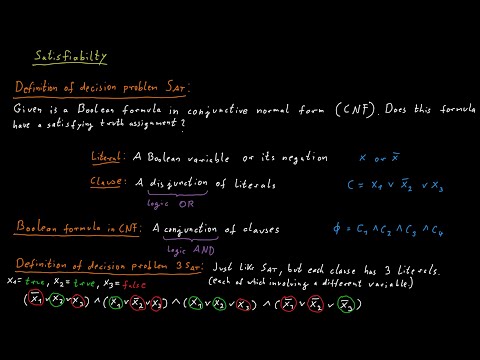 Satisfiabilty
Definition of decision problem SAT:
Given is a Boolean formula in conjunctive normal form (CNF). Does this formula
have a satisfying truth assignment?
Literal: A Boolean variable or its negation x or x̅
Clause: A disjunction of literals C = x₁ ∨ x̅₂ ∨ x₃
logic OR
Boolean formula in CNF: A conjunction of clauses ϕ = C₁ ∧ C₂ ∧ C₃ ∧ C₄
logic AND
Definition of decision problem 3SAT: Just like SAT, but each clause has 3 literals.
x₁= true, x₂= true, x₃= false (each of which involving a different variable)
(x̅₁ ∨ x₂ ∨ x₃) ∧ (x₁ ∨ x̅₂ ∨ x₃) ∧ (x₁ ∨ x₂ ∨ x₃) ∧ (x̅₁ ∨ x̅₂ ∨ x̅₃)